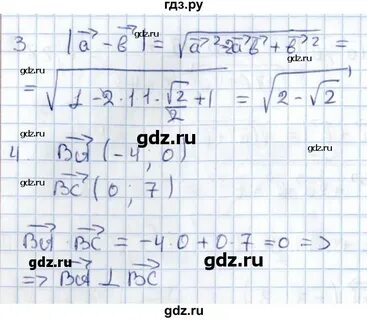 гдз.ру
3. |a⃗ - b⃗| = √(a⃗² - 2a⃗b⃗ + b⃗²) =
= √(1 - 2·1·1·√2/2 + 1) = √(2 - √2)
gdz.ru gdz.ru
4. BA⃗ (-4; 0)
gdz.ru
BC⃗ (0; 7)
gdz.ru
BA⃗ · BC⃗ = -4·0 + 0·7 = 0 =>
gdz.ru gdz.ru
=> BA⃗ ⊥ BC⃗
gdz.ru